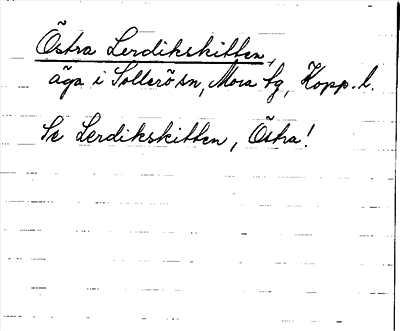 Östra Lerdikskitten,
äga i Sollerö sn, Mora tg, Kopp. l.
Se Lerdikskitten, Östra!